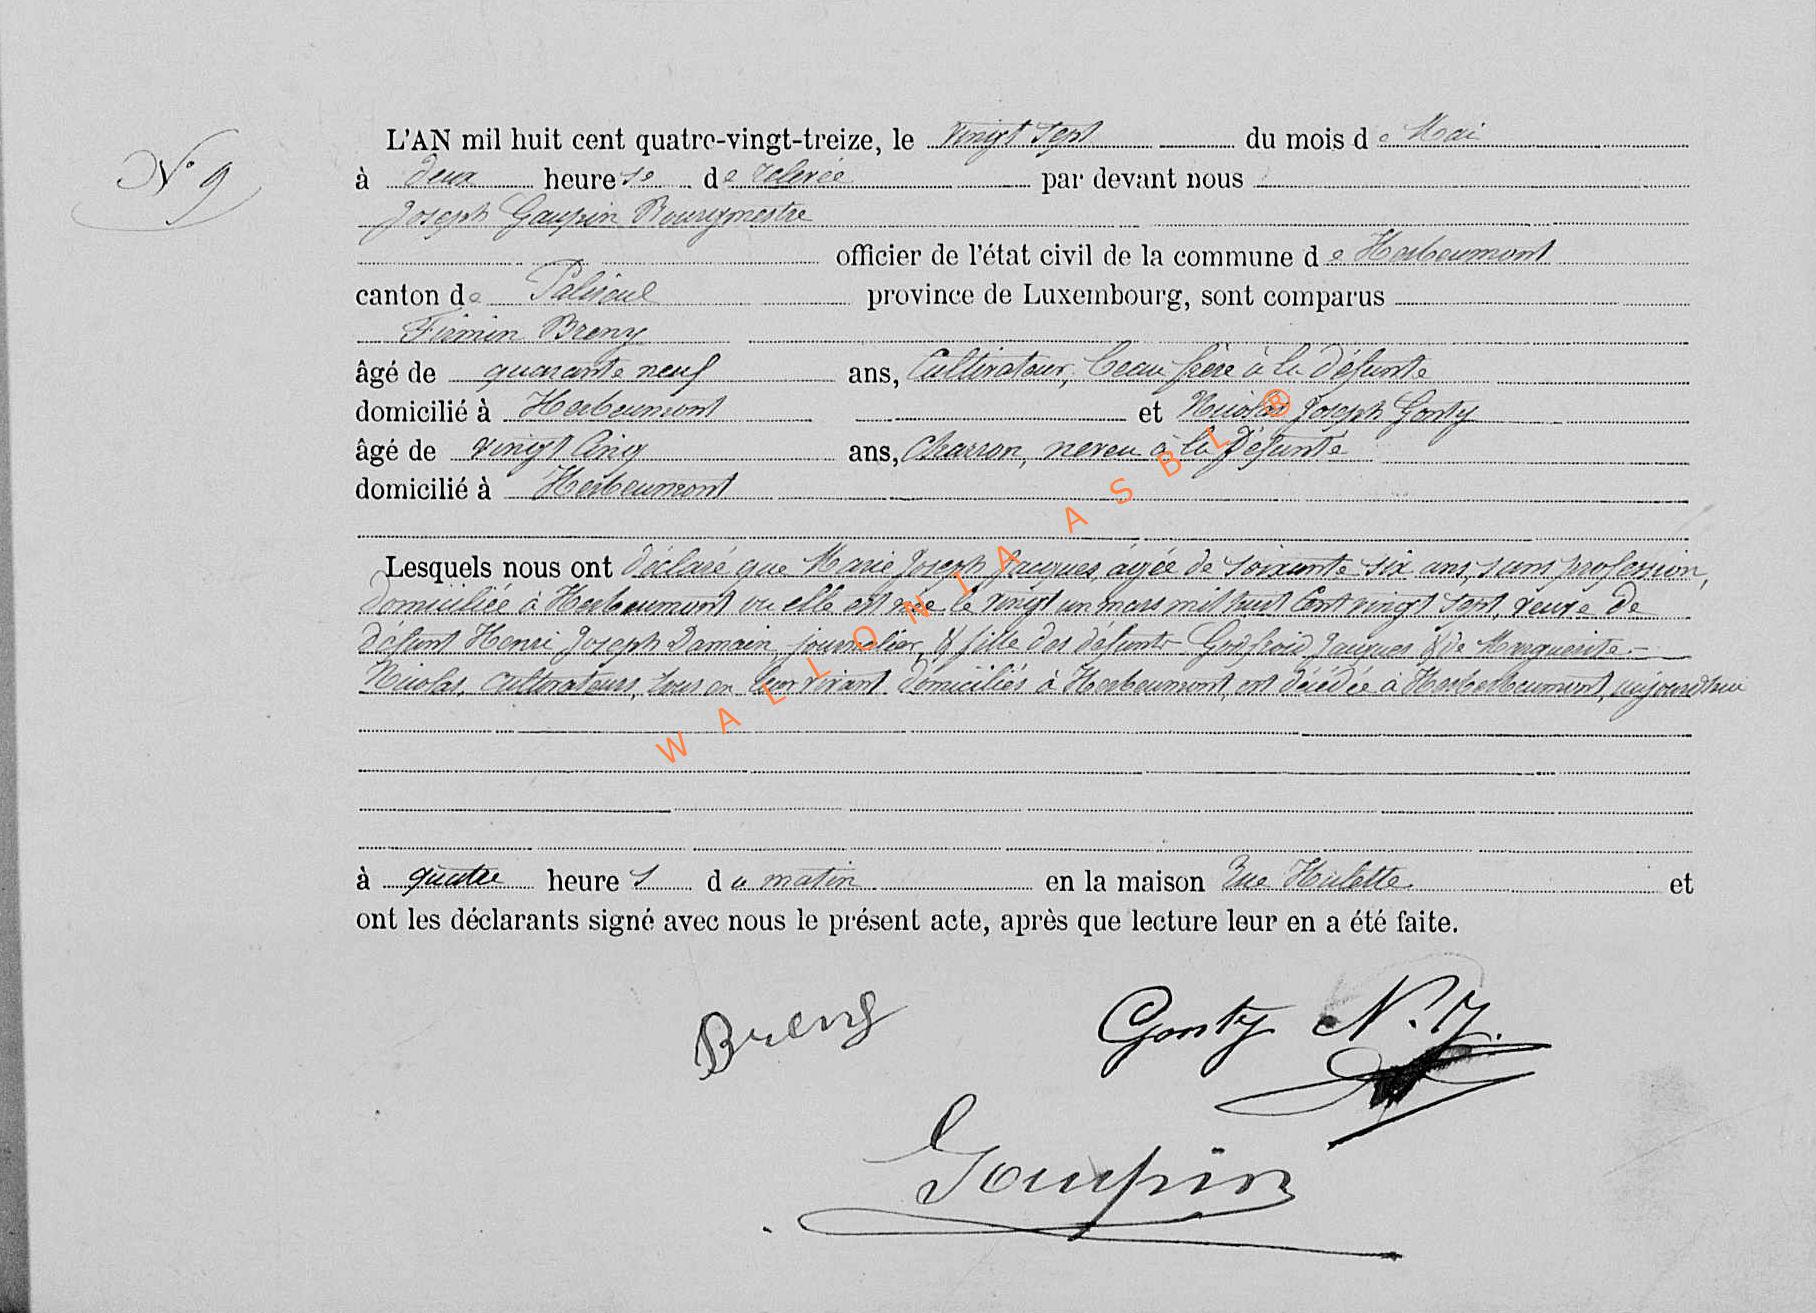 N° 9
L'AN mil huit cent quatre-vingt-treize, le vingt sept du mois de Mai
à deux heures de relevée par devant nous
Joseph Goupin Bourgmestre
officier de l'état civil de la commune de Herbeumont
canton de Paliseul province de Luxembourg, sont comparus
Firmin Breny
âgé de quarante neuf ans, Cultivateur, beau frère à la défunte
domicilié à Herbeumont et Nicolas Joseph Gonty
âgé de vingt cinq ans, Charron, neveu à la Défunte
domicilié à Herbeumont
Lesquels nous ont déclaré que Marie Joseph Jacques, âgée de soixante six ans, sans profession,
domiciliée à Herbeumont ou elle est née le vingt un mars mil huit cent vingt sept, veuve de
défunt Henri Joseph Damain, journalier, & fille des défunts Godfroid Jacques & de Marguerite
Nicolas, cultivateurs, tous en leur vivant domiciliés à Herbeumont, est décédée à Herberbeumont, aujourd'hui
à quatre heures du matin en la maison Rue Hulette et
ont les déclarants signé avec nous le présent acte, après que lecture leur en a été faite.
Breny Gonty N. J.
Goupin
WALLONIA ASBL ®